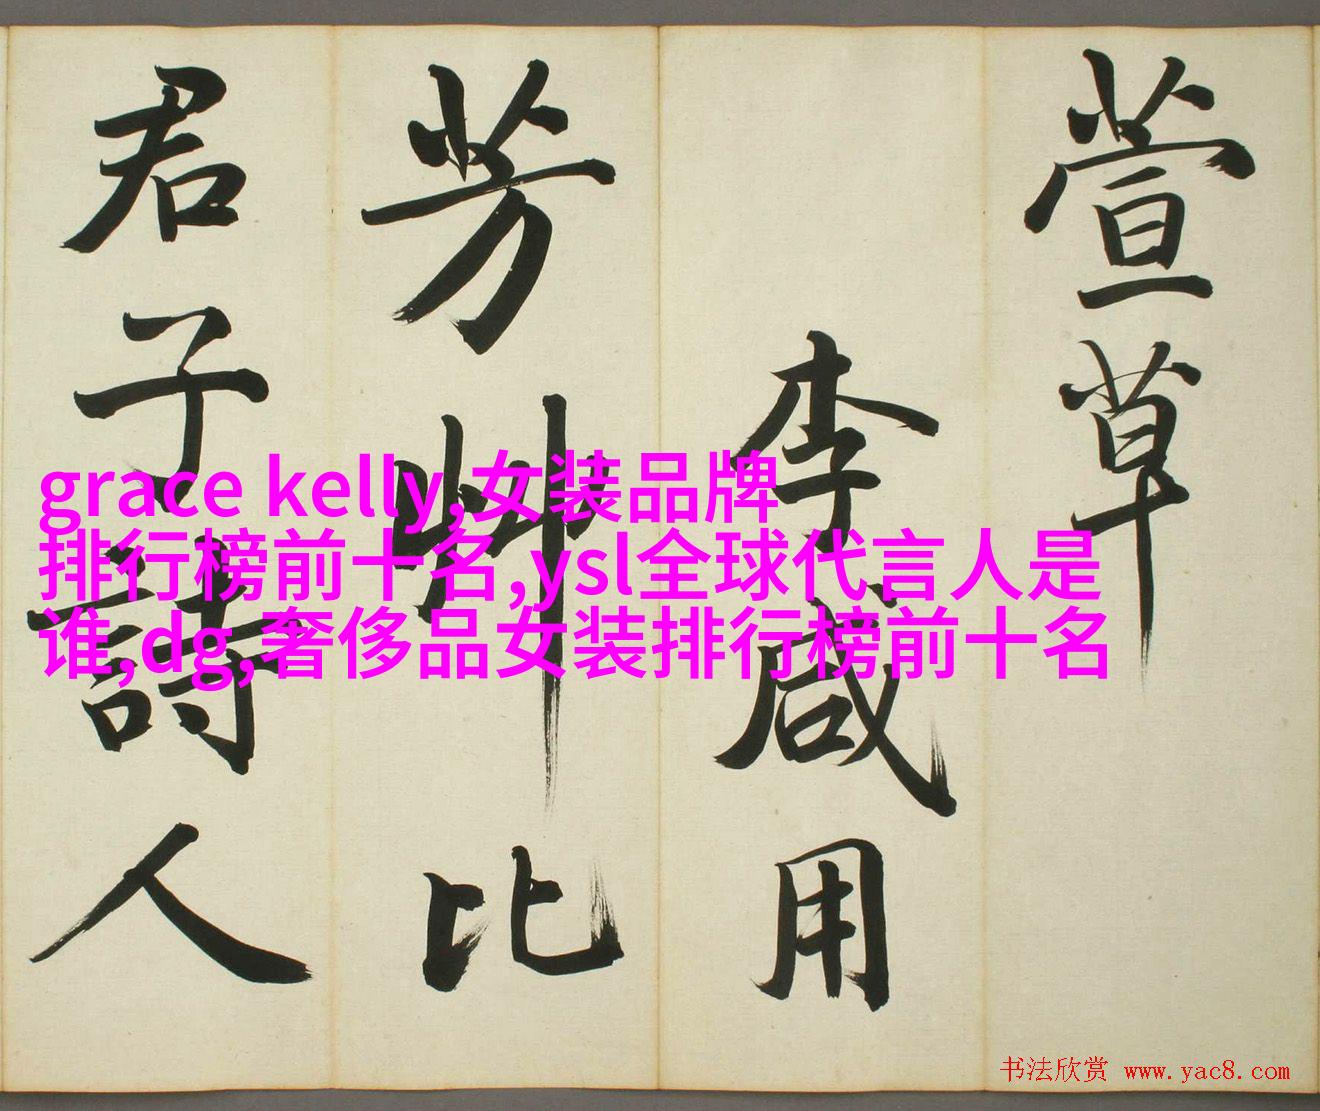 萱草
李咸用
芳艸比
君子詩人
grace kelly,女装品牌
排行榜前十名,ysl全球代言人是
谁,dg,奢侈品女装排行榜前十名
书法欣赏 www.yac8.com